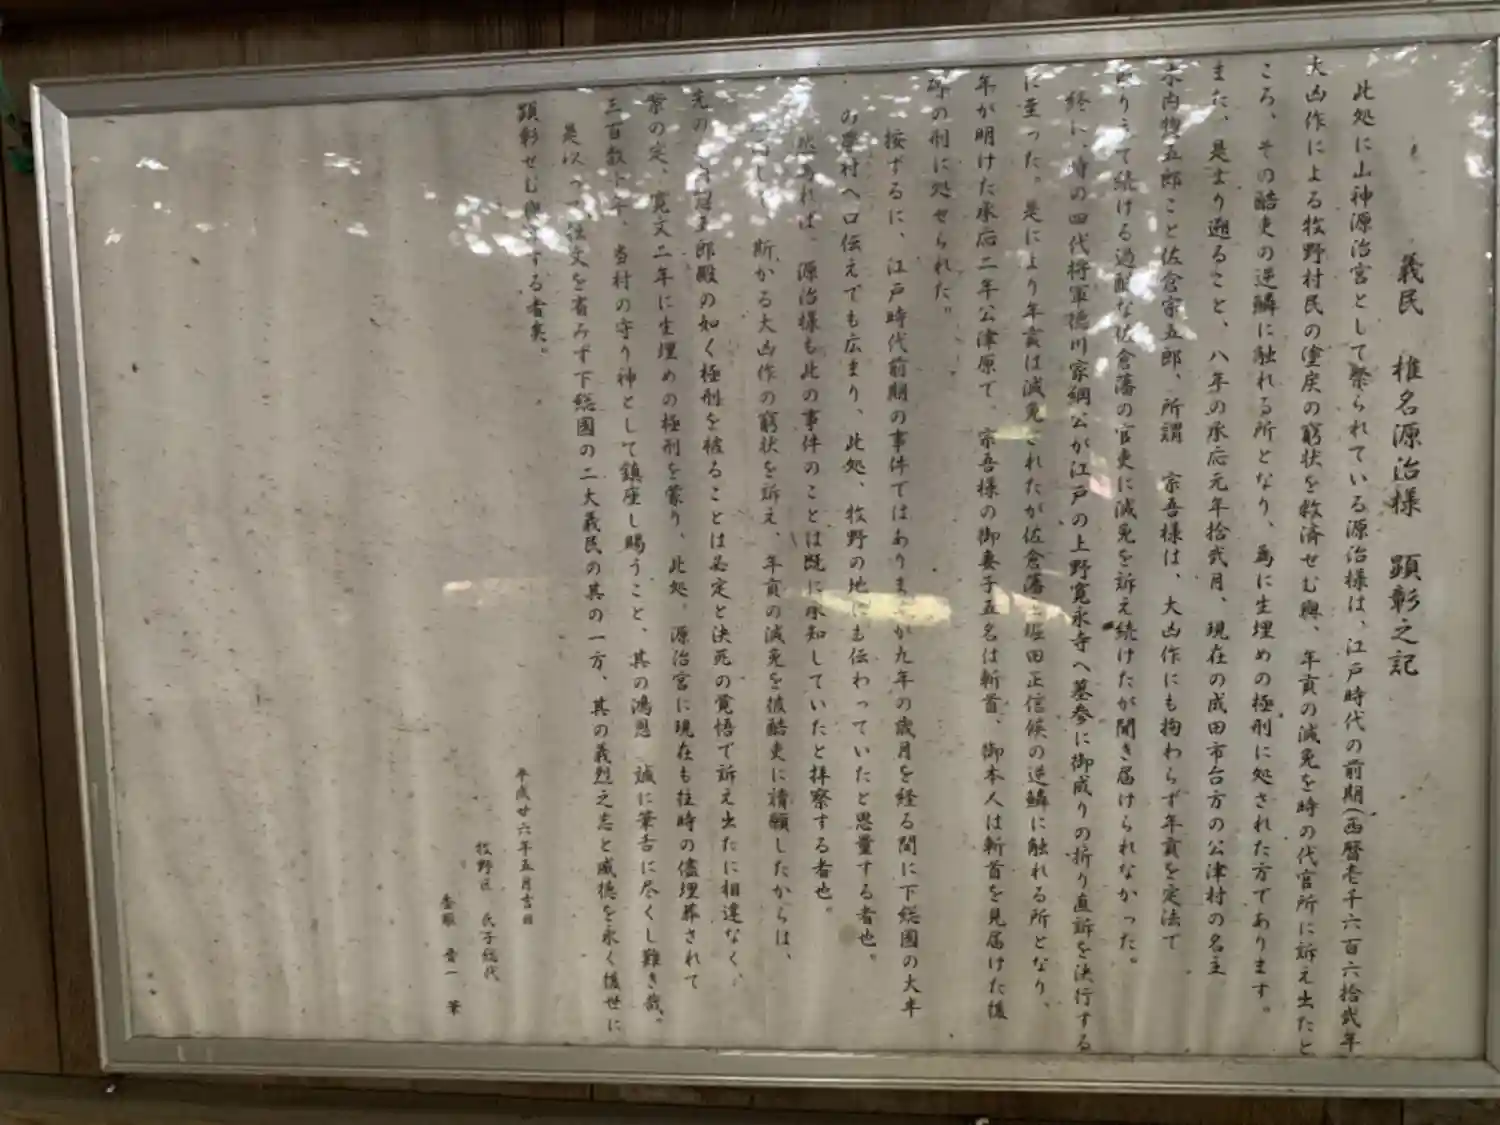 義民 椎名源治様 顕彰之記
此処に山神源治宮として祭られている源治様は、江戸時代の前期(西暦壱千六百六拾弐年
大凶作による牧野村民の塗炭の窮状を救済せむ與、年貢の減免を時の代官所に訴え出たと
ころ、その酷吏の逆鱗に触れる所となり、為に生埋めの極刑に処された方であります。
また、是より遡ること、八年の承応元年拾弐月、現在の成田市台方の公津村の名主
木内惣五郎こと佐倉宗五郎、所謂 宗吾様は、大凶作にも拘わらず年貢を定法で
取りたて続ける過酷な佐倉藩の官吏に減免を訴え続けたが聞き届けられなかった。
終に、時の四代将軍徳川家綱公が江戸の上野寛永寺へ墓参に御成りの折り直訴を決行する
に至った。是により年貢は減免されたが佐倉藩主堀田正信候の逆鱗に触れる所となり、
年が明けた承応二年公津原で、宗吾様の御妻子五名は斬首、御本人は斬首を見届けた後
磔の刑に処せられた。
按ずるに、江戸時代前期の事件ではありますが九年の歳月を経る間に下総国の大半
の農村へ口伝えでも広まり、此処、牧野の地にも伝わっていたと思量する者也。
然れば、源治様も此の事件のことは既に承知していたと拝察する者也。
斯かる大凶作の窮状を訴え、年貢の減免を彼酷吏に請願したからは、
先の 五郎殿の如く極刑を被ることは必定と決死の覚悟で訴え出たに相違なく、
案の定、寛文二年に生埋めの極刑を蒙り、此処、源治宮に現在も往時の儘埋葬されて
三百数十年、当村の守り神として鎮座し賜うこと、其の鴻恩 誠に筆舌に尽くし難き哉。
是以って拙文を省みず下総國の二大義民の其の一方、其の義烈之志と威徳を永く後世に
顕彰せむ與 する者矣。
平成廿六年五月吉日
牧野区 氏子総代
一 筆